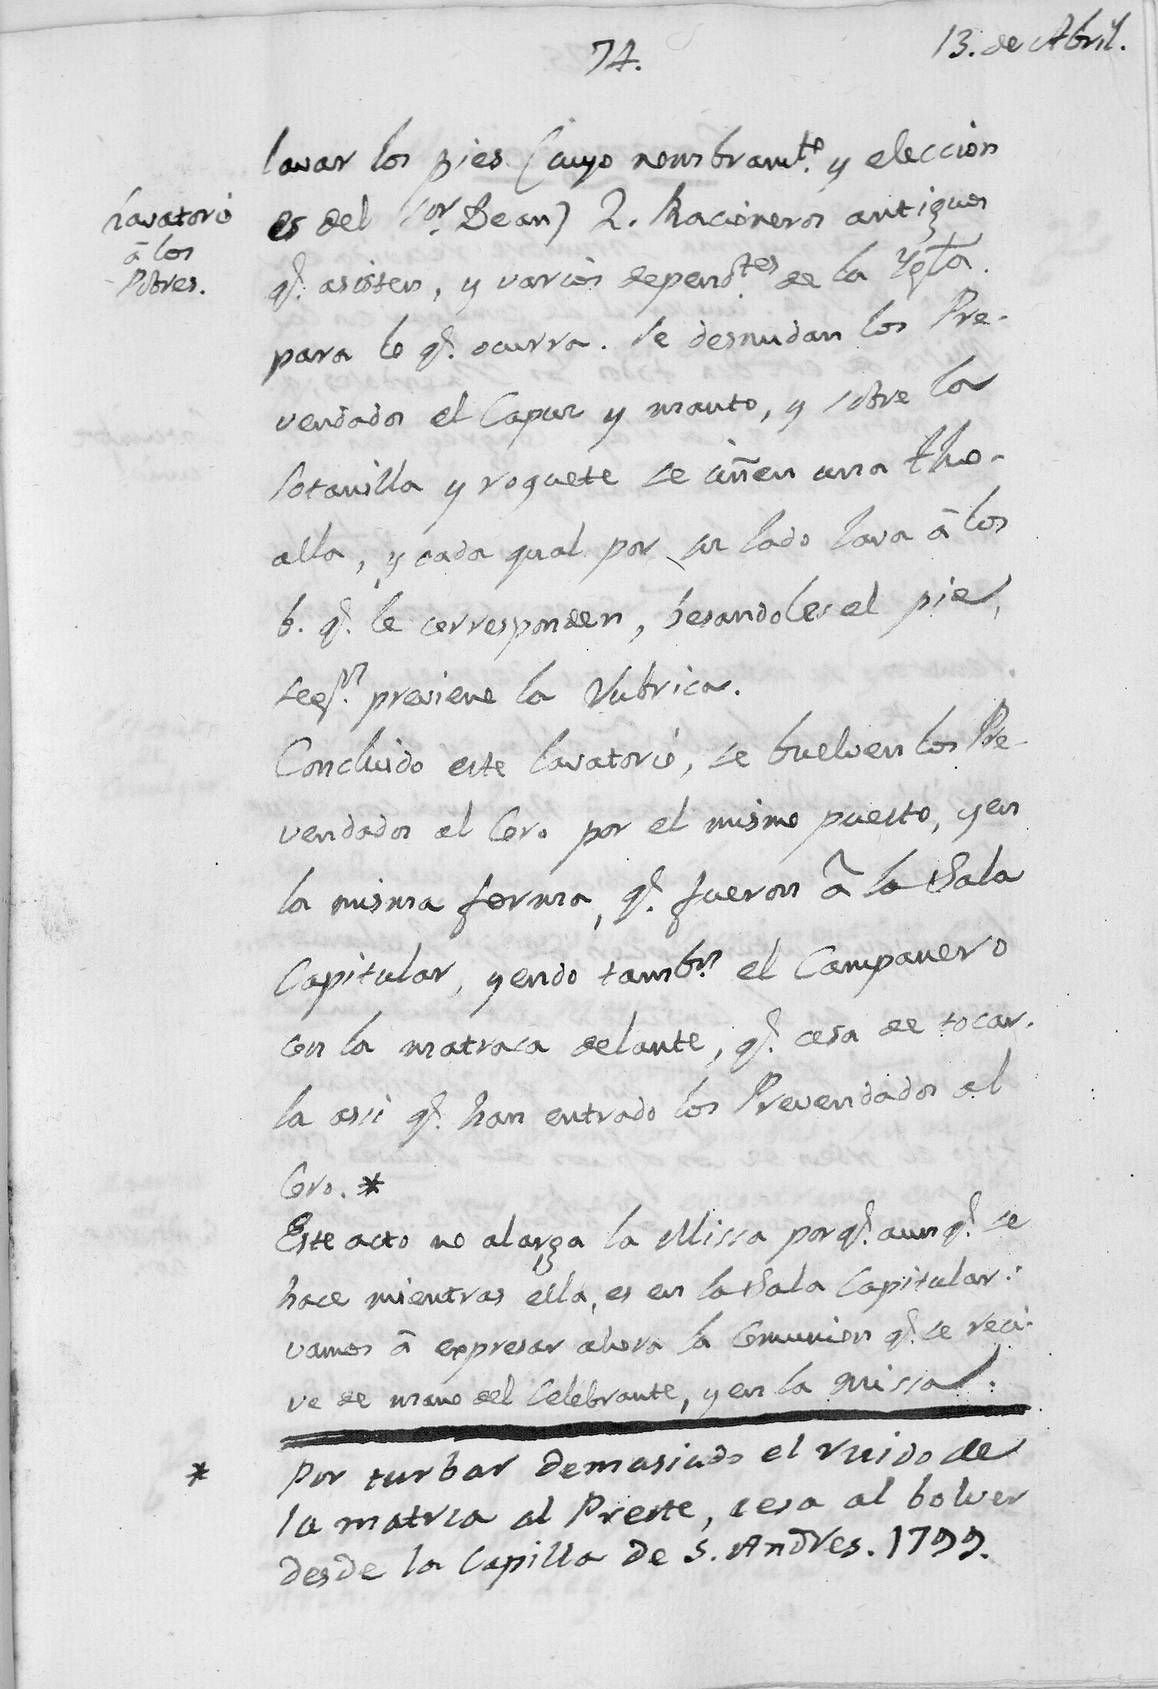 74.
13. de Abril.
lavar los pies (cuyo nombramto. y eleccion
es del Sor. Dean) 2. Racioneros antiguos
Lavatorio
à los
Pobres.
q. asisten, y varios dependtes de la Ygla.
para lo q. ocurra. Se desnudan los Pre-
vendados el Capuz y manto, y sobre la
Sotanilla y roquete se ciñen una tho-
alla, y cada qual por su lado lava à los
6. q. le corresponden, besandoles el pie,
segn. previene la Rubrica.
Concluido este lavatorio, se buelven los Pre-
vendados al Coro por el mismo puesto, y en
la misma forma, q. fueron à la Sala
Capitular, yendo tambn el Campanero
con la matraca delante, q. cesa de tocar-
la asii q. han entrado los Prevendados al
Coro. *
Este acto no alarga la Missa porq. aunq. se
hace mientras ella, es en la Sala Capitular:
vamos à expresar ahora la Comunion q. se reci-
ve de mano del Celebrante, y en la Missa.
* Por turbar demasiado el ruido de
la matrca al Preste, cesa al bolver
desde la Capilla de S. Andres. 1799.